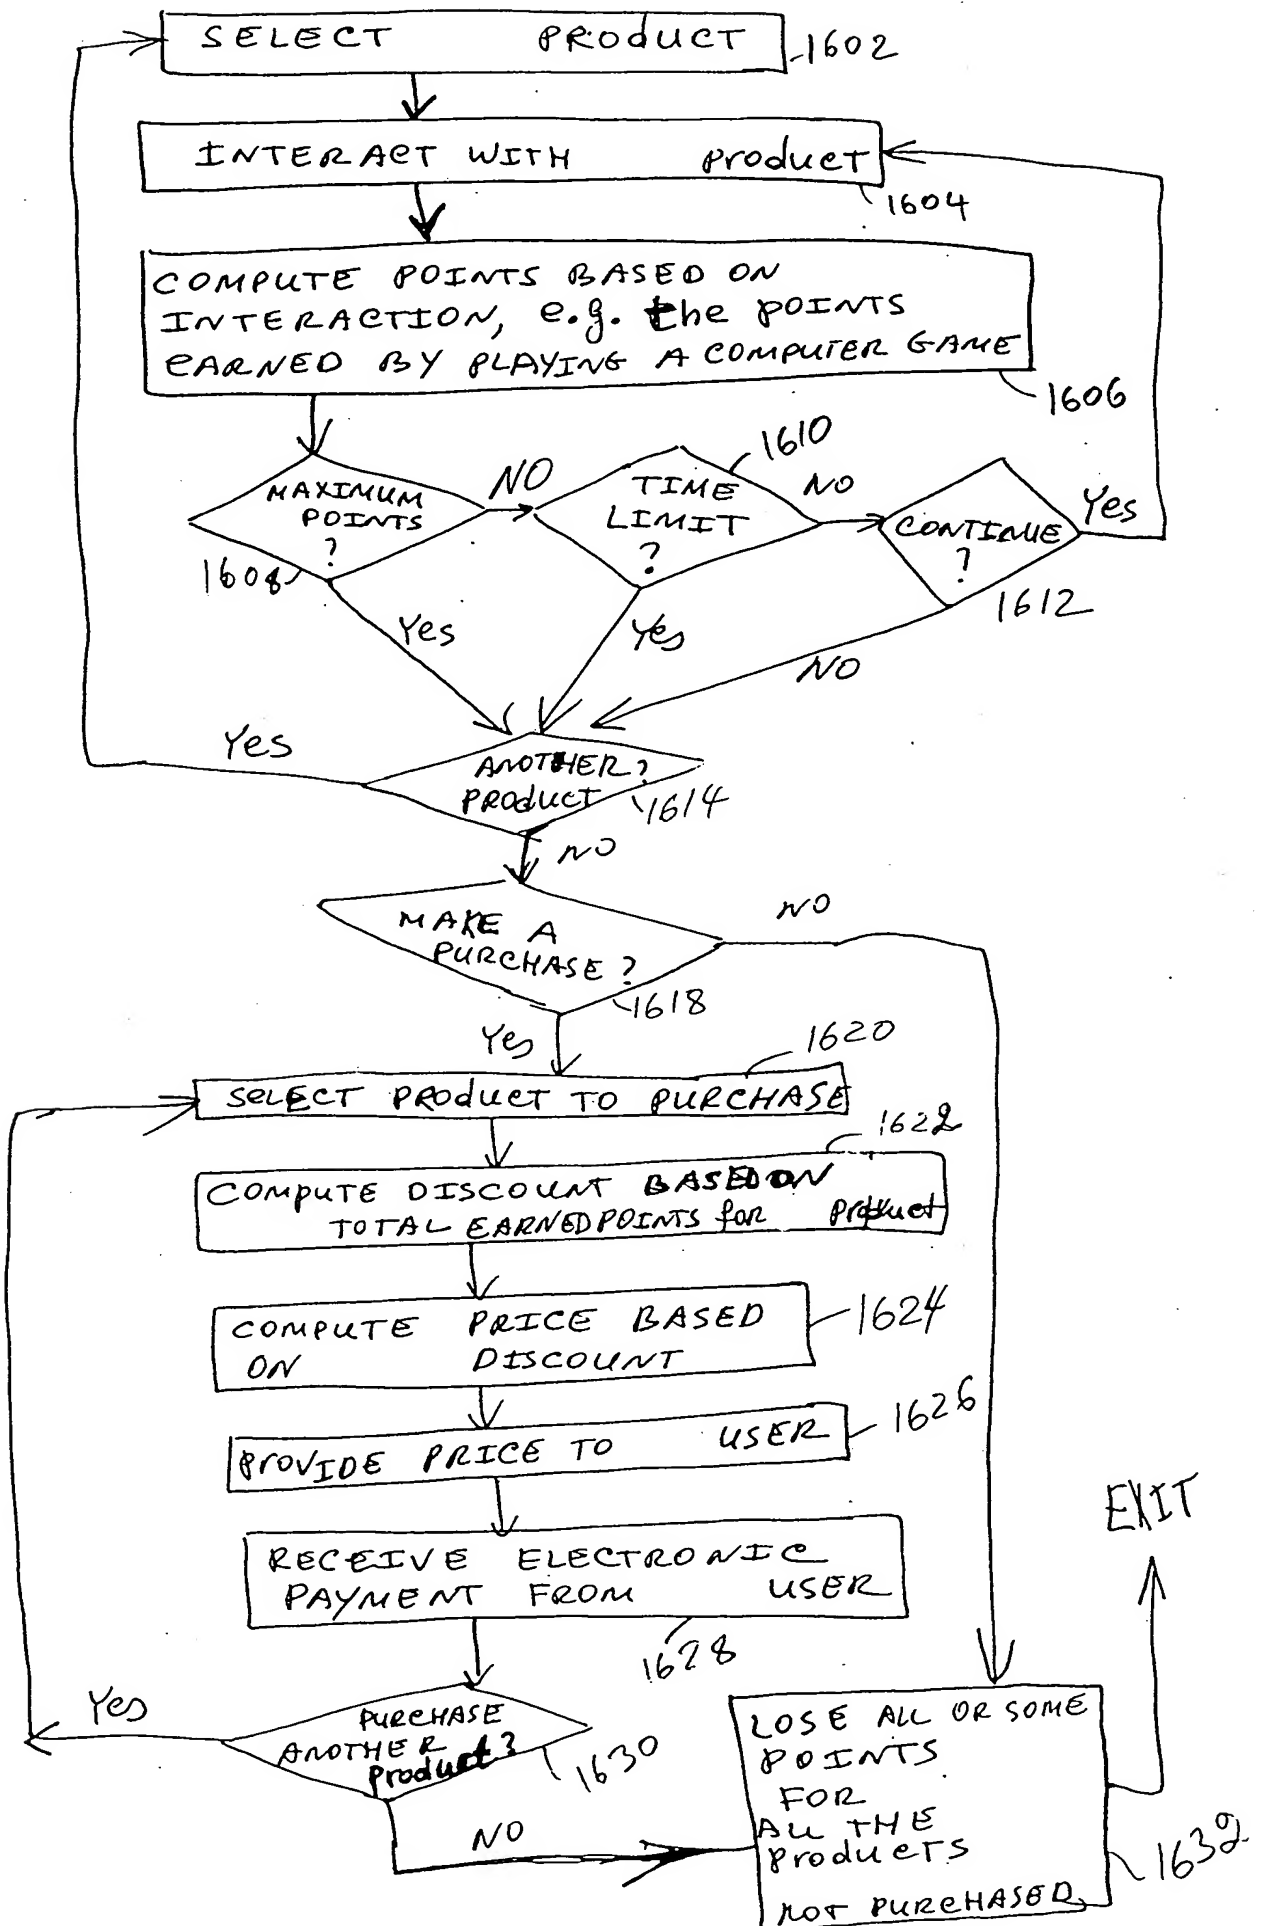 SELECT PRODUCT
1602
INTERACT WITH PRODUCT
1604
COMPUTE POINTS BASED ON
INTERACTION, e.g. the POINTS
EARNED BY PLAYING A COMPUTER GAME
1606
MAXIMUM
POINTS
?
1608
NO
1610
TIME
LIMIT
?
NO
CONTINUE
?
1612
Yes
Yes
Yes
NO
Yes
ANOTHER?
PRODUCT
1614
NO
MAKE A
PURCHASE?
1618
NO
Yes
1620
SELECT PRODUCT TO PURCHASE
1622
COMPUTE DISCOUNT BASED ON
TOTAL EARNED POINTS for Product
COMPUTE PRICE BASED
ON DISCOUNT
1624
PROVIDE PRICE TO USER
1626
RECEIVE ELECTRONIC
PAYMENT FROM USER
1628
EXIT
Yes
PURCHASE
ANOTHER
Product?
1630
NO
LOSE ALL OR SOME
POINTS
FOR
ALL THE
Products
NOT PURCHASED
1632